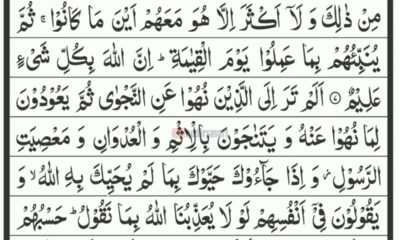 مِنْ ذٰلِكَ وَ لَاۤ اَكْثَرَ اِلَّا هُوَ مَعَهُمْ اَيْنَ مَا كَانُوْا ۚ ثُمَّ
يُنَبِّئُهُمْ بِمَا عَمِلُوْا يَوْمَ الْقِيٰمَةِ ؕ اِنَّ اللّٰهَ بِكُلِّ شَیْءٍ
عَلِيْمٌ ﴿۷﴾ اَلَمْ تَرَ اِلَى الَّذِيْنَ نُهُوْا عَنِ النَّجْوٰى ثُمَّ يَعُوْدُوْنَ
لِمَا نُهُوْا عَنْهُ وَ يَتَنٰجَوْنَ بِالْاِثْمِ وَ الْعُدْوَانِ وَ مَعْصِيَتِ
الرَّسُوْلِ ؗ وَ اِذَا جَآءُوْكَ حَيَّوْكَ بِمَا لَمْ يُحَيِّكَ بِهِ اللّٰهُ ۙ وَ
يَقُوْلُوْنَ فِیْۤ اَنْفُسِهِمْ لَوْ لَا يُعَذِّبُنَا اللّٰهُ بِمَا نَقُوْلُ ؕ حَسْبُهُمْ